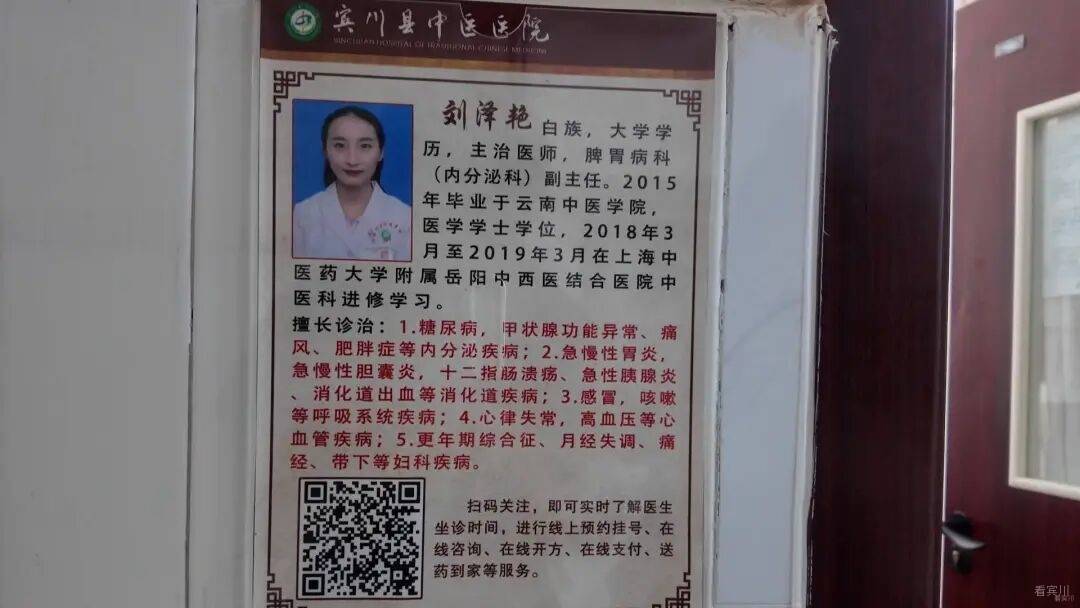 宾川县中医医院
BINCHUAN HOSPITAL OF TRADITIONAL CHINESE MEDICINE
刘泽艳 白族，大学学
历，主治医师，脾胃病科
（内分泌科）副主任。2015
年毕业于云南中医学院，
医学学士学位，2018年3
月至2019年3月在上海中
医药大学附属岳阳中西医结合医院中
医科进修学习。
擅长诊治：1.糖尿病，甲状腺功能异常、痛
风、肥胖症等内分泌疾病；2.急慢性胃炎，
急慢性胆囊炎，十二指肠溃疡、急性胰腺炎
、消化道出血等消化道疾病；3.感冒，咳嗽
等呼吸系统疾病；4.心律失常，高血压等心
血管疾病；5.更年期综合征、月经失调、痛
经、带下等妇科疾病。
扫码关注，即可实时了解医生
坐诊时间，进行线上预约挂号、在
线咨询、在线开方、在线支付、送
药到家等服务。
看宾川
看宾川